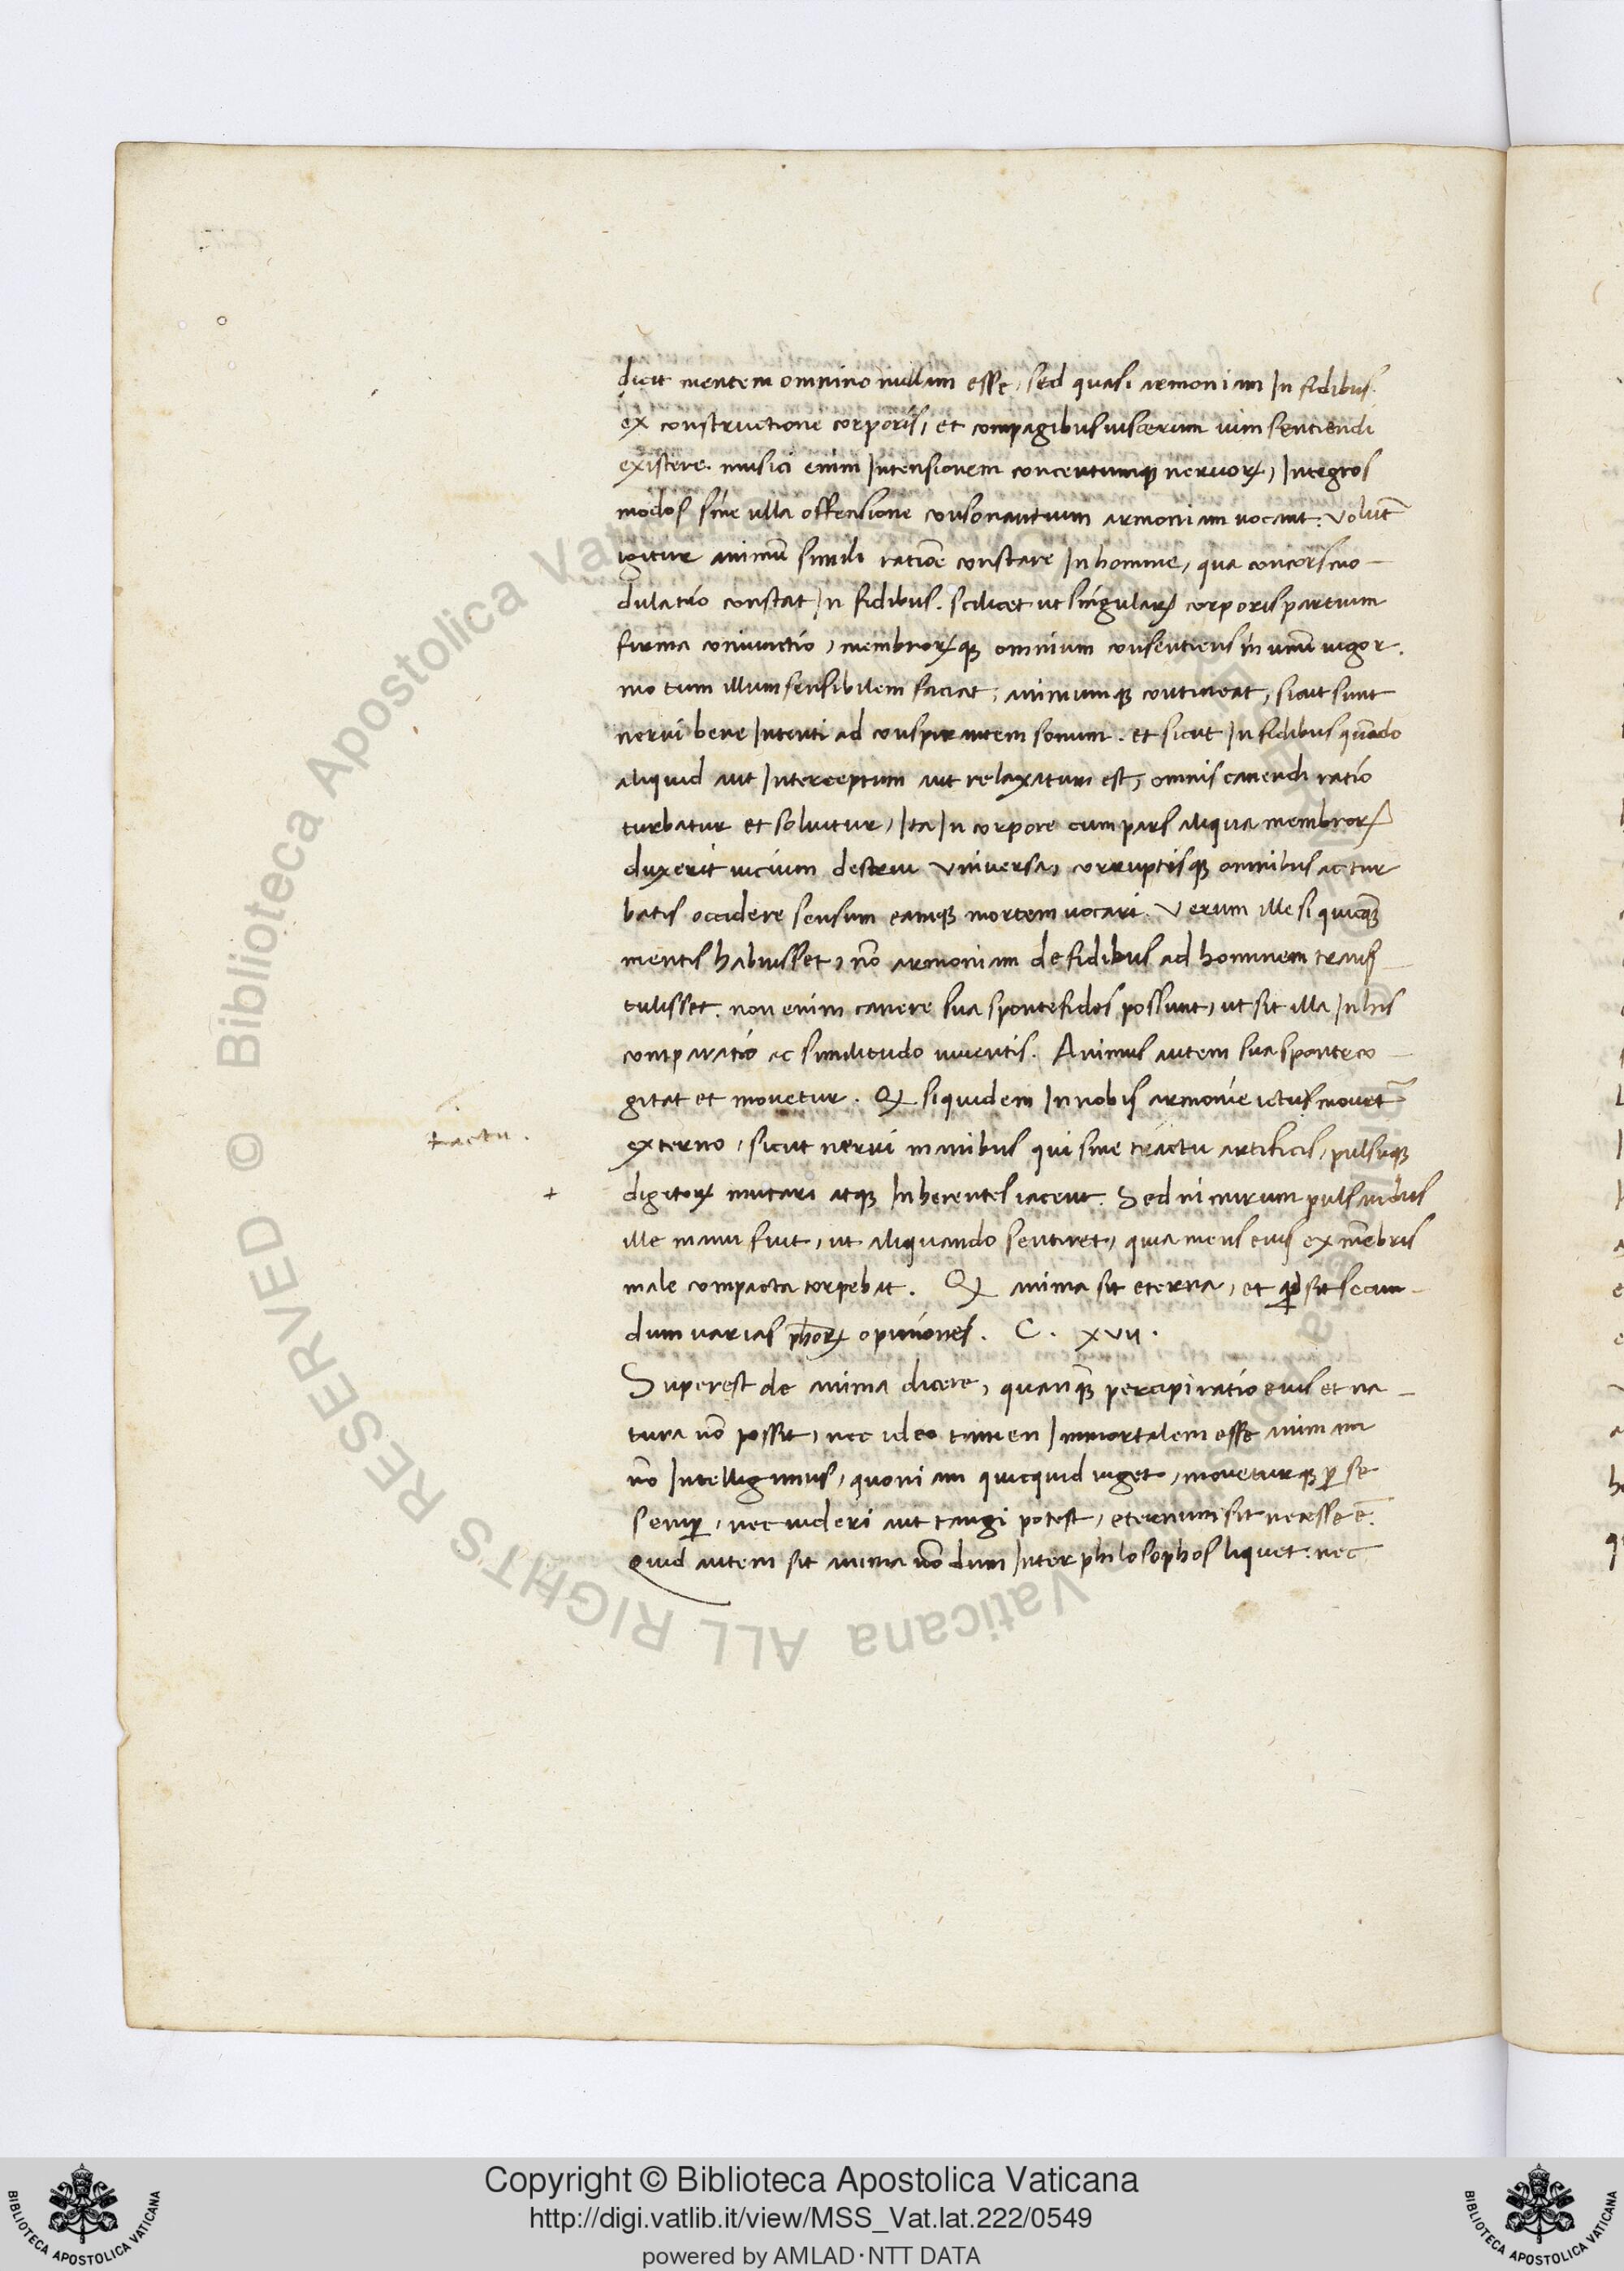 dicit mentem omnino nullam esse, sed quasi armoniam In fidibus.
ex constructione corporis, et compagibus uiscerum uim sentiendi
existere. musici enim Intensionem concentumqꝫ neruoꝝ, Integros
modos sine ulla offensione consonantium armoniam uocant. Volūt
igitur animū simili ratiōe constare In homine, qua concors mo-
dulatio constat In fidibus. scilicet ut singulaꝝ corporis partium
firma coniunctio, membroꝝqꝫ omnium consentiens in unū uigor.
motum illum sensibilem faciat, animumqꝫ contineat, sicut sunt
nerui bene Intenti ad conspirantem sonum. et sicut In fidibus quādo
aliquid aut Interceptum aut relaxatum est, omnis canendi ratio
turbatur et soluitur, Ita In corpore cum pars aliqua membroꝝ
duxerit uicium destrui Vniuersa, corruptisqꝫ omnibus ac tur
batis occidere sensum eamqꝫ mortem uocari. Verum ille si quicq̄
mentis habuisset, nō armoniam de fidibus ad hominem trans-
tulisset. non enim canere sua sponte fides possunt, ut sit illa In his
comparatio ac similitudo uiuentis. Animus autem sua sponte co-
gitat et mouetur. Qꝫ siquidem In nobis armonie ictus mouet᷑
tactu.
externo, sicut nerui manibus qui sine tractu artificis, pulsuqꝫ
+
digitoꝝ mutari atqꝫ Inherentes iacent. Sed nimirum pulsandus
ille manu fuit, ut aliquando sentiret, quia mens eius ex mēbris
male compacta torpebat. Qꝫ anima sit eterna, et qd sit secun-
dum uarias ph̄oꝝ opiniones. C. xvii.
Superest de anima dicere, quanq̄ percipi ratio eius et na-
tura nō possit, nec ideo tamen Immortalem esse animam
nō Intelligimus, quoniam quicquid uiget, moueturqꝫ ꝑ se
semꝑ, nec uideri aut tangi potest, eternum sit necesse ē.
Quid autem sit anima nōdum Inter philosophos liquet. nec
© Biblioteca Apostolica Vaticana ALL RIGHTS RESERVED
Copyright © Biblioteca Apostolica Vaticana
http://digi.vatlib.it/view/MSS_Vat.lat.222/0549
powered by AMLAD·NTT DATA
BIBLIOTECA APOSTOLICA VATICANA
BIBLIOTECA APOSTOLICA VATICANA